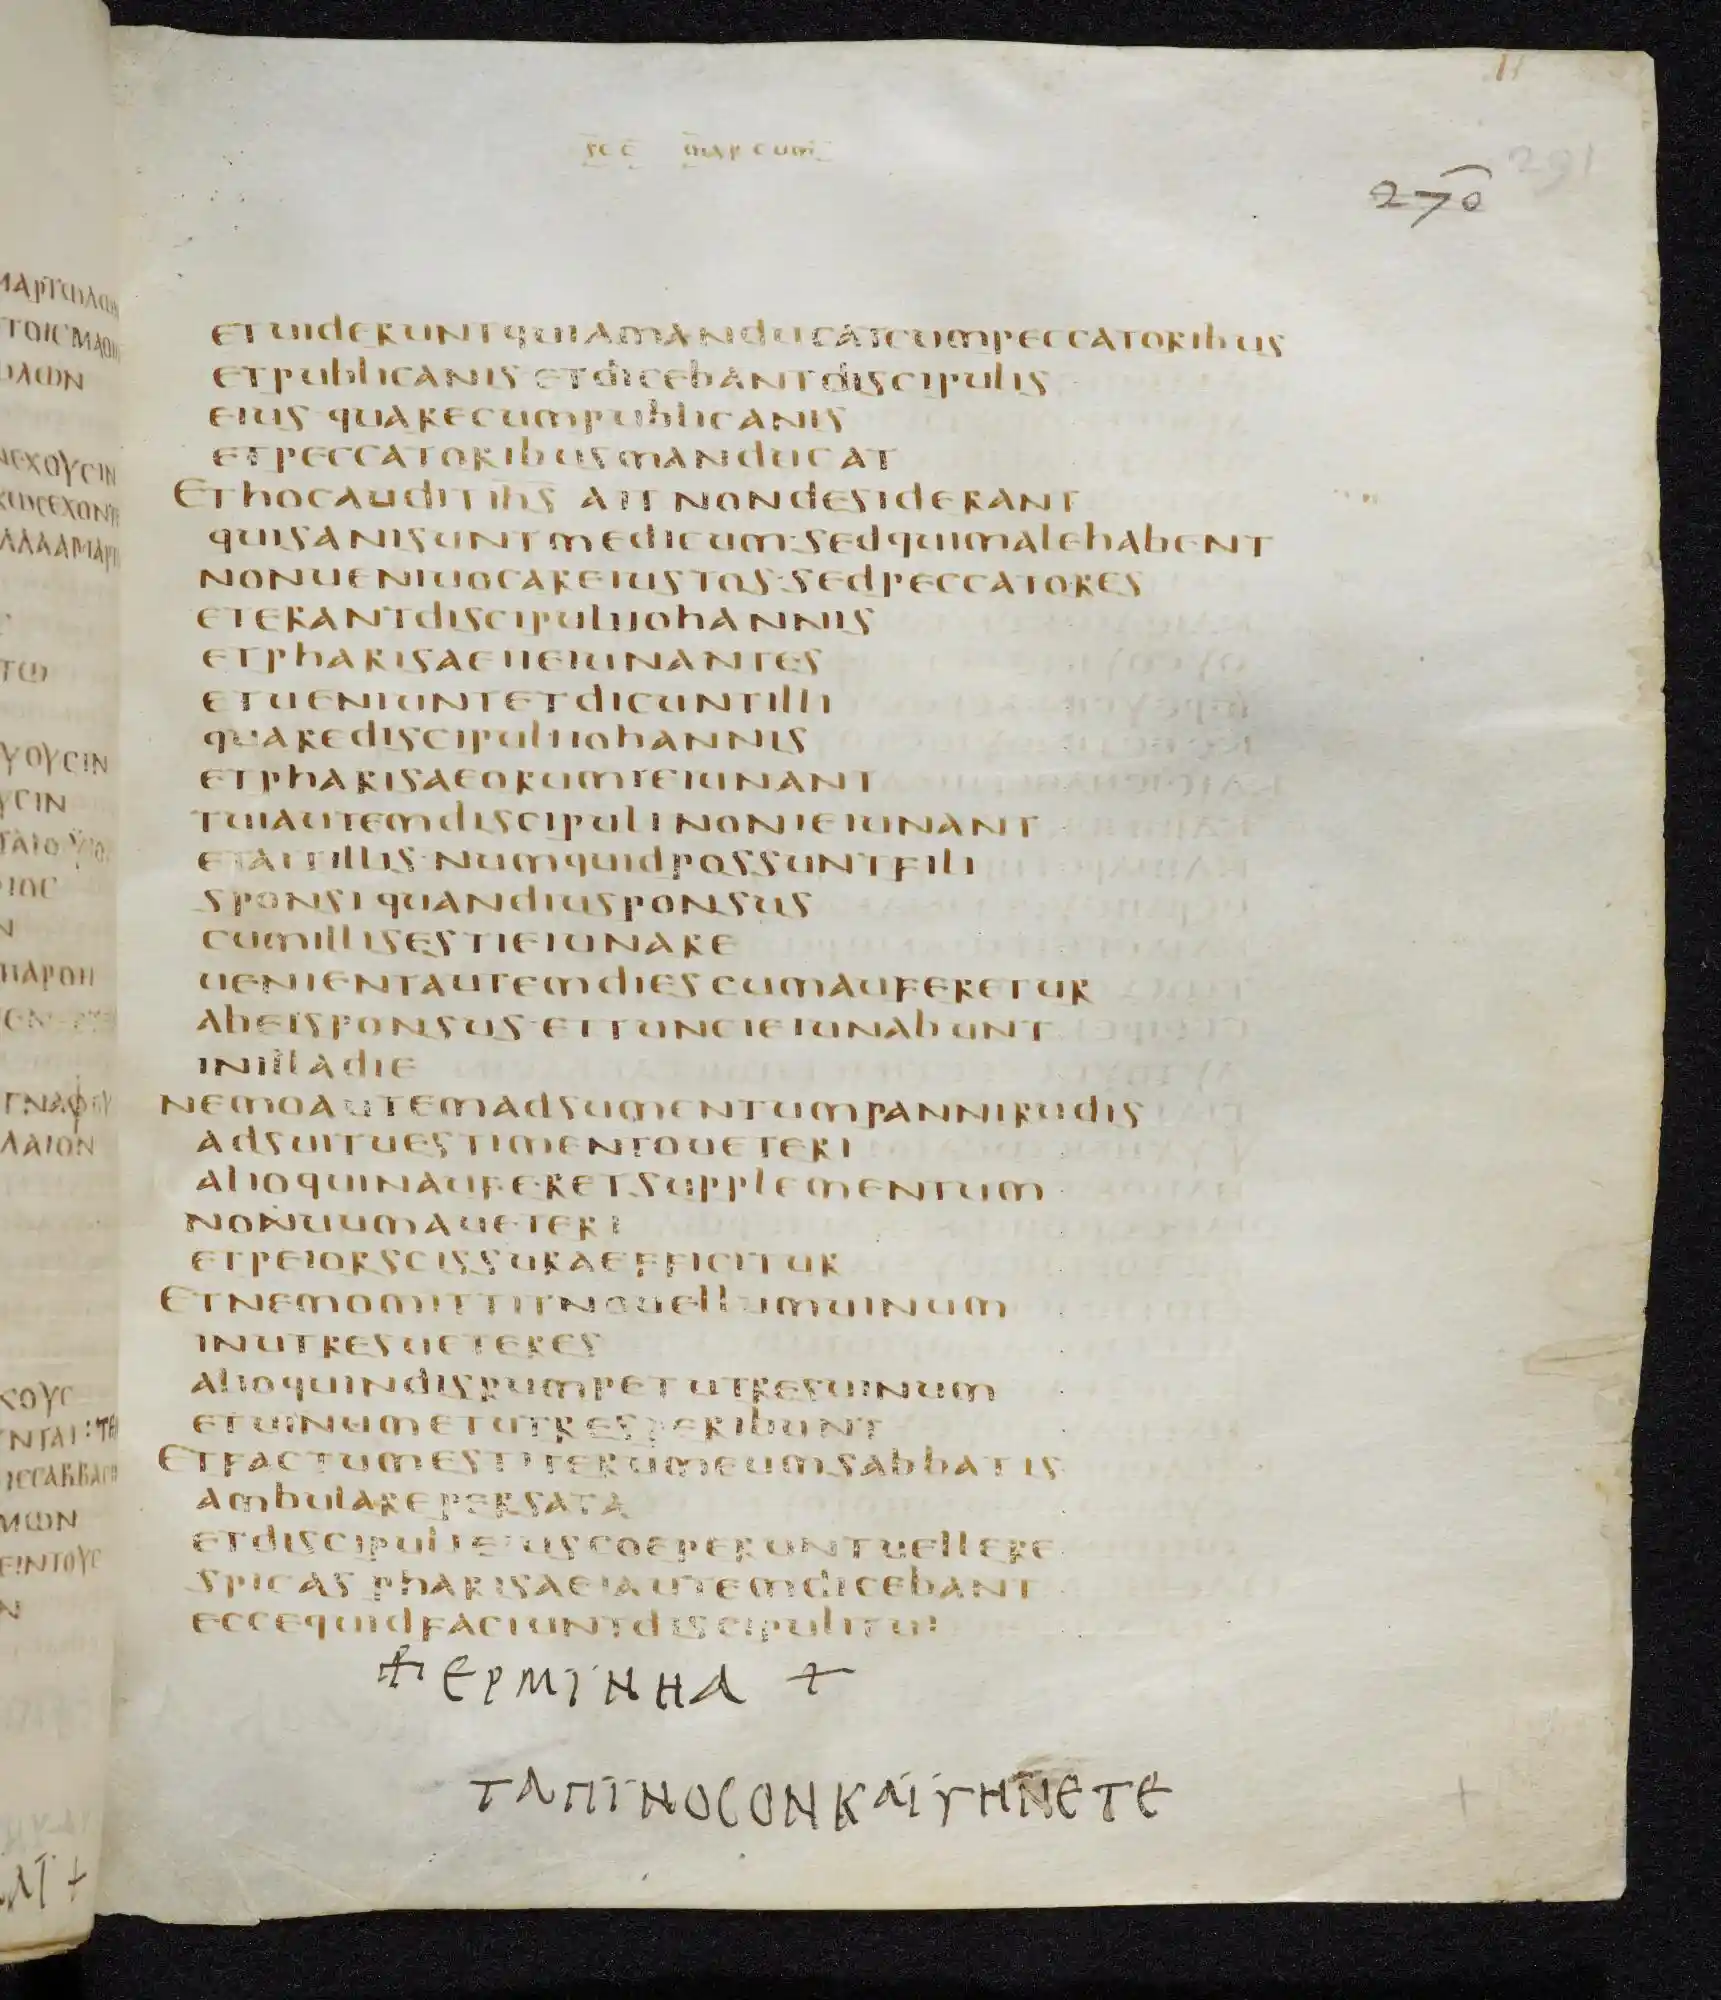 sec marcum
270
291
et uiderunt quia manducat cum peccatoribus
et publicanis et dicebant discipulis
eius quare cum publicanis
et peccatoribus manducat
Et hoc audit ihs ait non desiderant
qui sani sunt medicum · sed qui male habent
non ueni uocare iustos · sed peccatores
et erant discipuli iohannis
et pharisaei ieiunantes
et ueniunt et dicunt illi
quare discipuli iohannis
et pharisaeorum ieiunant
tui autem discipuli non ieiunant
et ait illis · numquid possunt fili
sponsi quandiu sponsus
cum illis est ieiunare
uenient autem dies cum auferetur
ab eis sponsus · et tunc ieiunabunt
in illa die
nemo autem adsumentum panni rudis
adsuit uestimento ueteri
alioquin auferet supplementum
nonuum a ueteri
et peior scissura efficitur
Et nemo mittit nouellum uinum
in utres ueteres
alioquin disrumpet utres uinum
et uinum et utres peribunt
Et factum est iterum eum sabbatis
ambulare per sata
et discipuli eius coeperunt uellere
spicas pharisaei autem dicebant
ecce quid faciunt discipuli tui
+ ΕΡΜΪΝΗΑ +
ΤΑΠΪΝΟCΟΝ ΚΑΪ ΓΗΝΕΤΕ